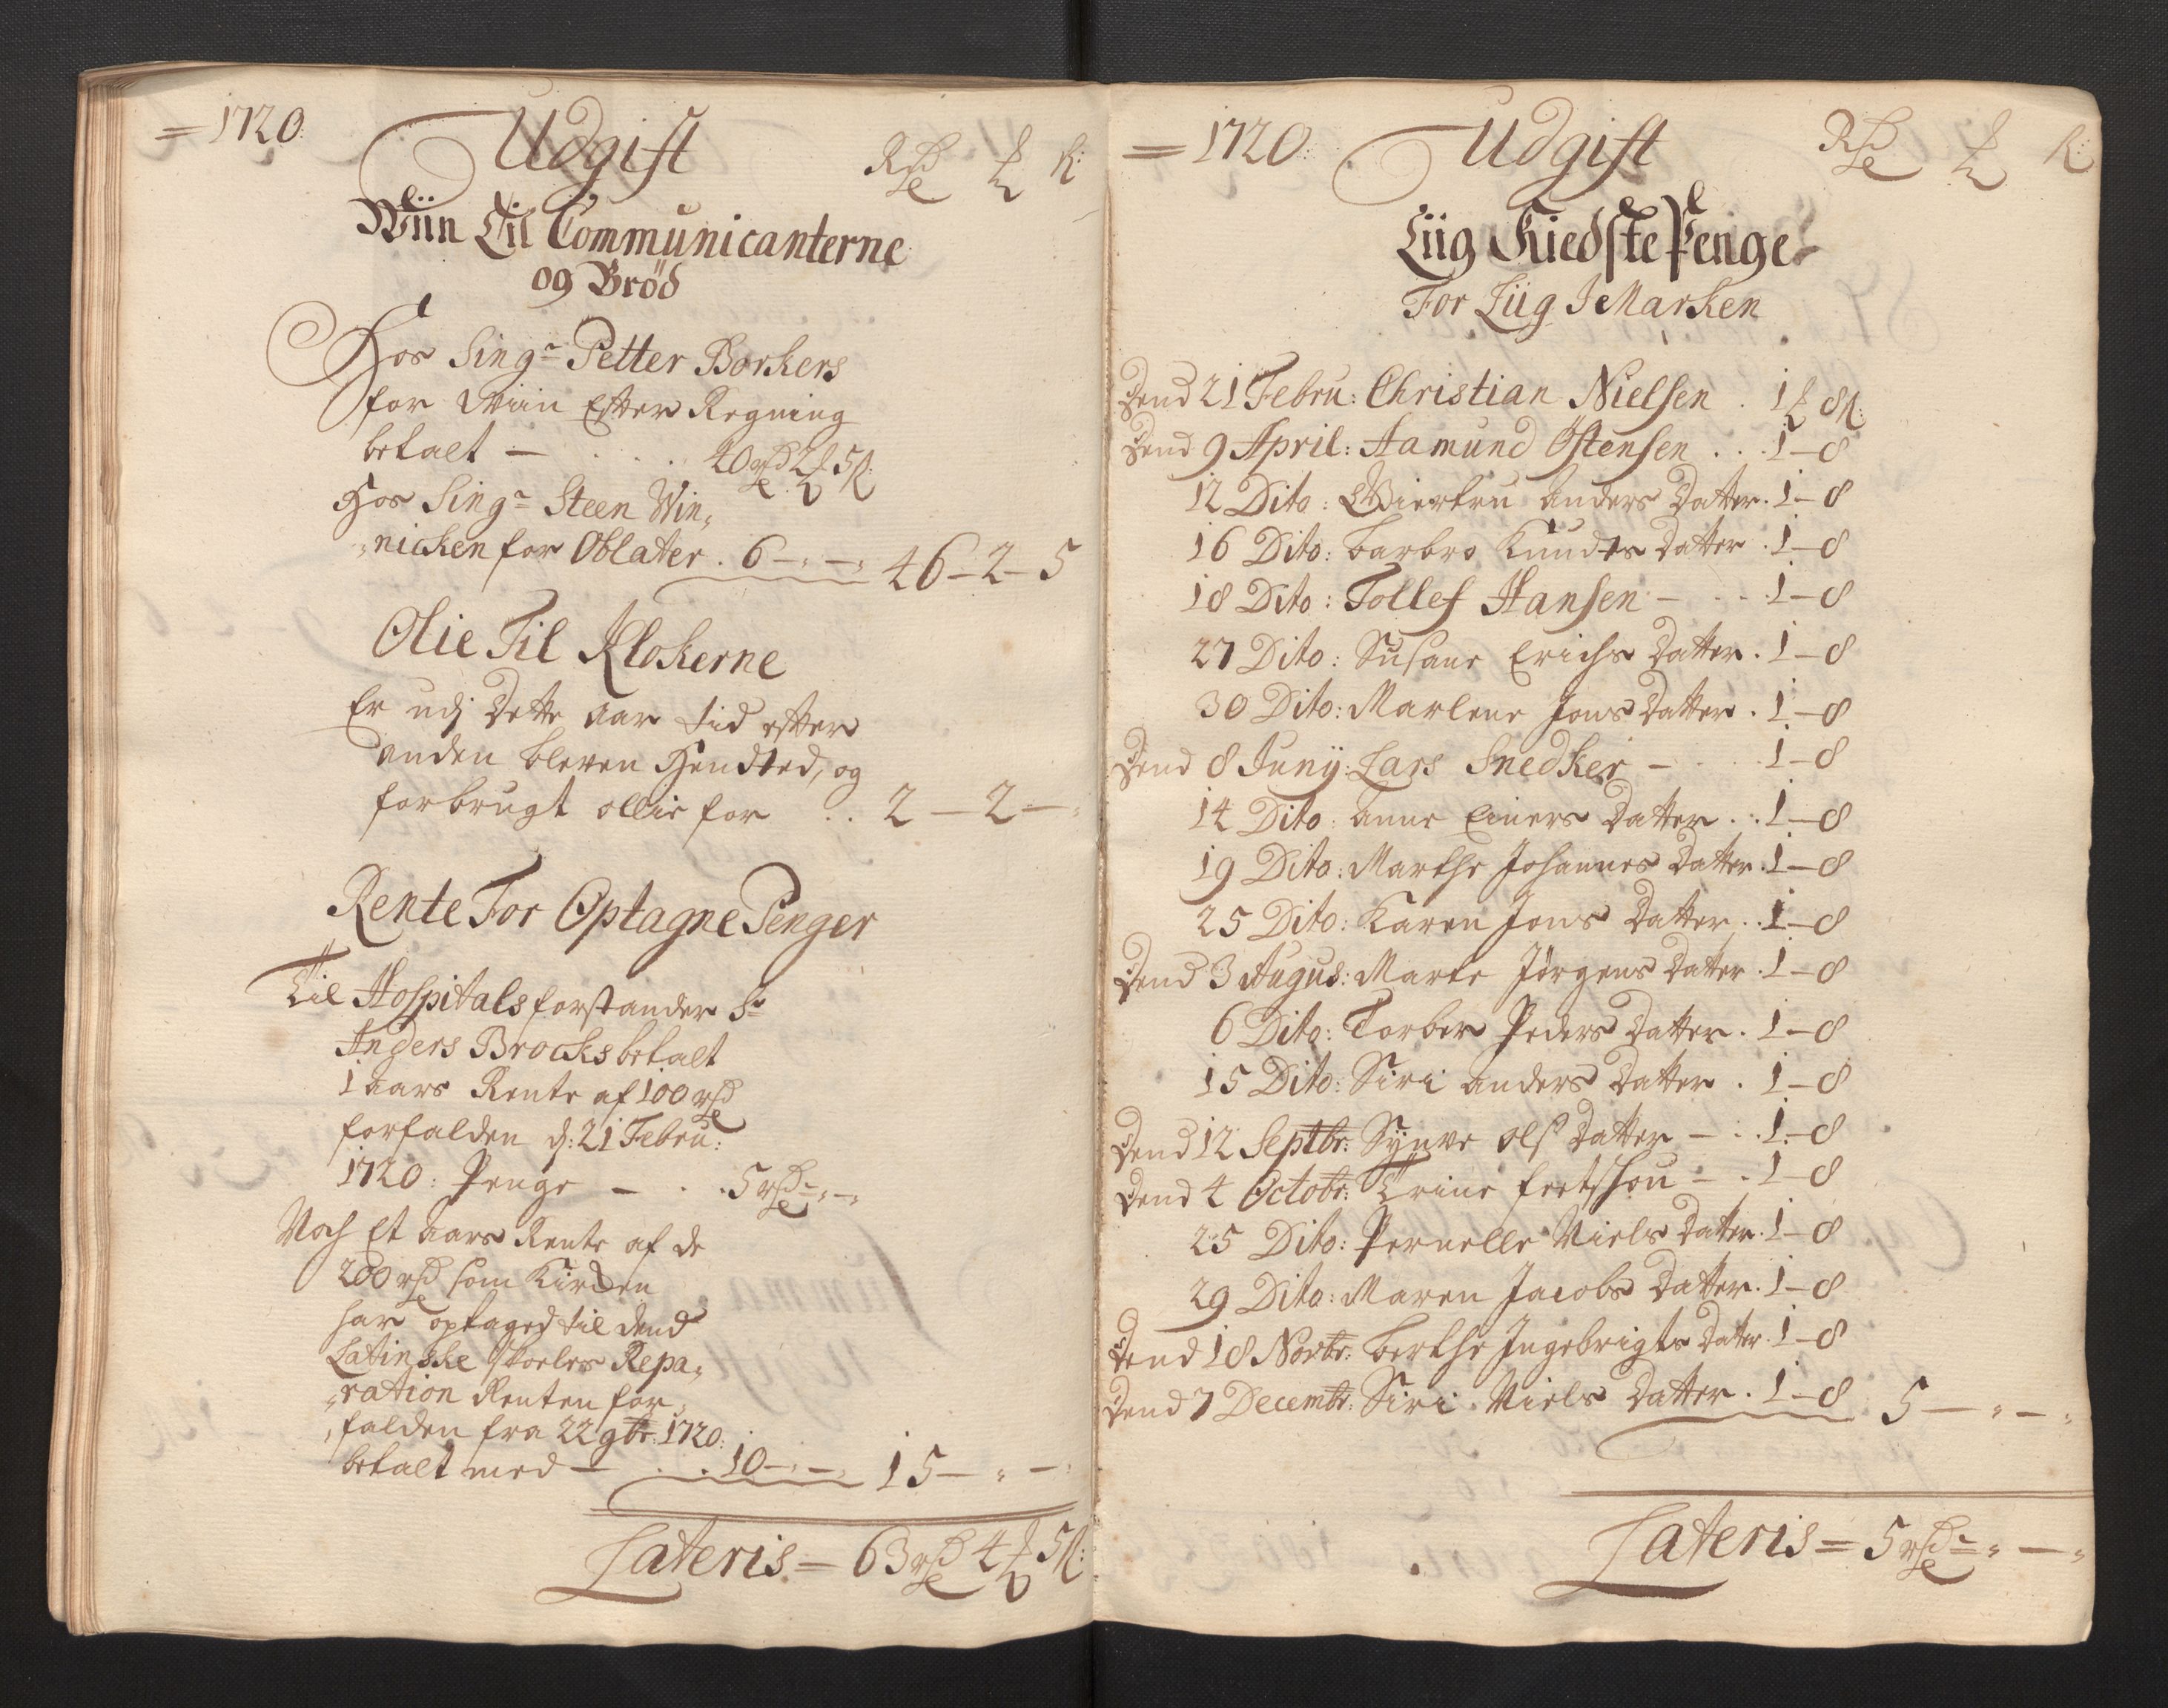 = 1720: Udgift Rdr ℔ ß:
Wiin Til Communicanterne
og Bröd
Hos Singr Petter Borkers
for Wiin Efter Regning
betalt — . . . 40 rdr 2 ℔ 5 ß:
Hos Singr Steen Win,,
,,nichen for Oblater . 6 —,, —,, 46 — 2 — 5
Olie Til Klokerne
Er udj Dette Aar tid efter
anden bleven Hendted, og
forbrugt ollie for . . 2 — 2 —,,
Rente For Optagne Penger
Til Hospitals forstander Sr
Anders Brocks betalt
1 aars Rente af 100 rdr
forfalden d: 21 Febru:
1720: Penge — . . 5 rdr —,, —,,
Noch Et aars Rente af de
200 rdr som Kirken
har optaged til dend
Latinske skoeles Repa,,
,,ration Renten for,,
,,falden fra 22 9br: 1720:
betalt med — . . 10 —,, —,, 15 —,, —,,
Lateris = 63 rdr 4 ℔ 5 ß:
= 1720: Udgift Rdr ℔ ß:
Liig Kiedste Penge
For Liig J Marken
Dend 21 Febru: Christian Nielsen . 1 ℔ 8 ß:
Dend 9 April: Aamund Östensen . . . 1 — 8
12 Dito: Giertru Anders Datter . 1 — 8
16 Dito: Barbro Knudts Datter . 1 — 8
18 Dito: Tollef Hansen — . . 1 — 8
27 Dito: Susane Erichs Datter . 1 — 8
30 Dito: Marlene Jons Datter . 1 — 8
Dend 8 Junij: Lars Snedker — . . 1 — 8
14 Dito: Anne Einers Datter . . 1 — 8
19 Dito: Marthe Johannes Datter . 1 — 8
25 Dito: Karen Jons Datter . . 1 — 8
Dend 3 Augus: Marte Jörgens Datter . 1 — 8
6 Dito: Torber Peders Datter . 1 — 8
15 Dito: Siri Anders Datter . 1 — 8
Dend 12 Septbr: Synve Ols Datter — . . 1 — 8
Dend 4 Octobr: Trine — . 1 — 8
25 Dito: Pernelle Niels Datter . 1 — 8
29 Dito: Maren Jacobs Datter . 1 — 8
Dend 18 Novbr: Berthe Ingebrigts Datter . 1 — 8
Dend 7 Decembr: Siri Niels Datter . 1 — 8 5 —,, —,,
Lateris = 5 rdr —,, —,,